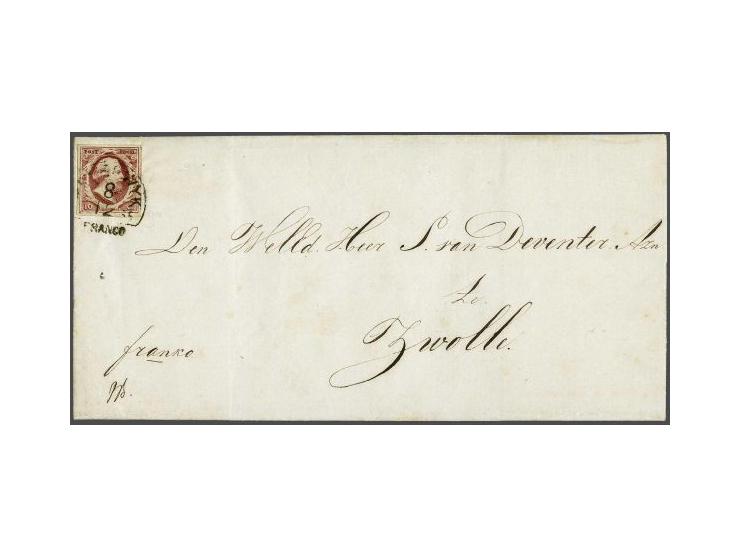 POST ZEGEL
8
10
FRANCO
Den Welld. Heer S. van Deventer Azn
te.
Zwolle.
franko